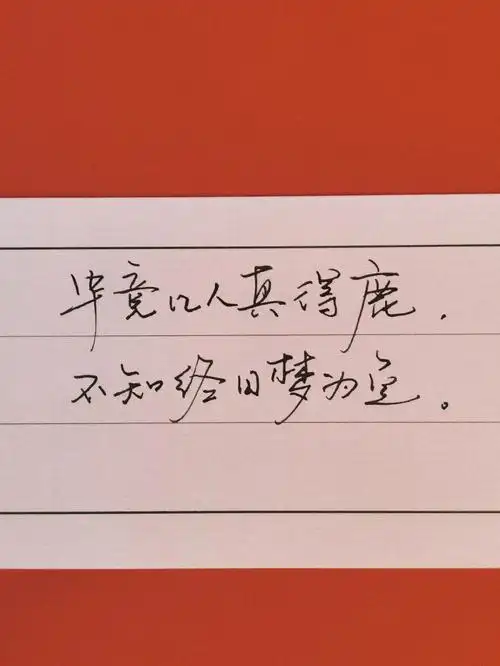 毕竟几人真得鹿，
不知终日梦为鱼。